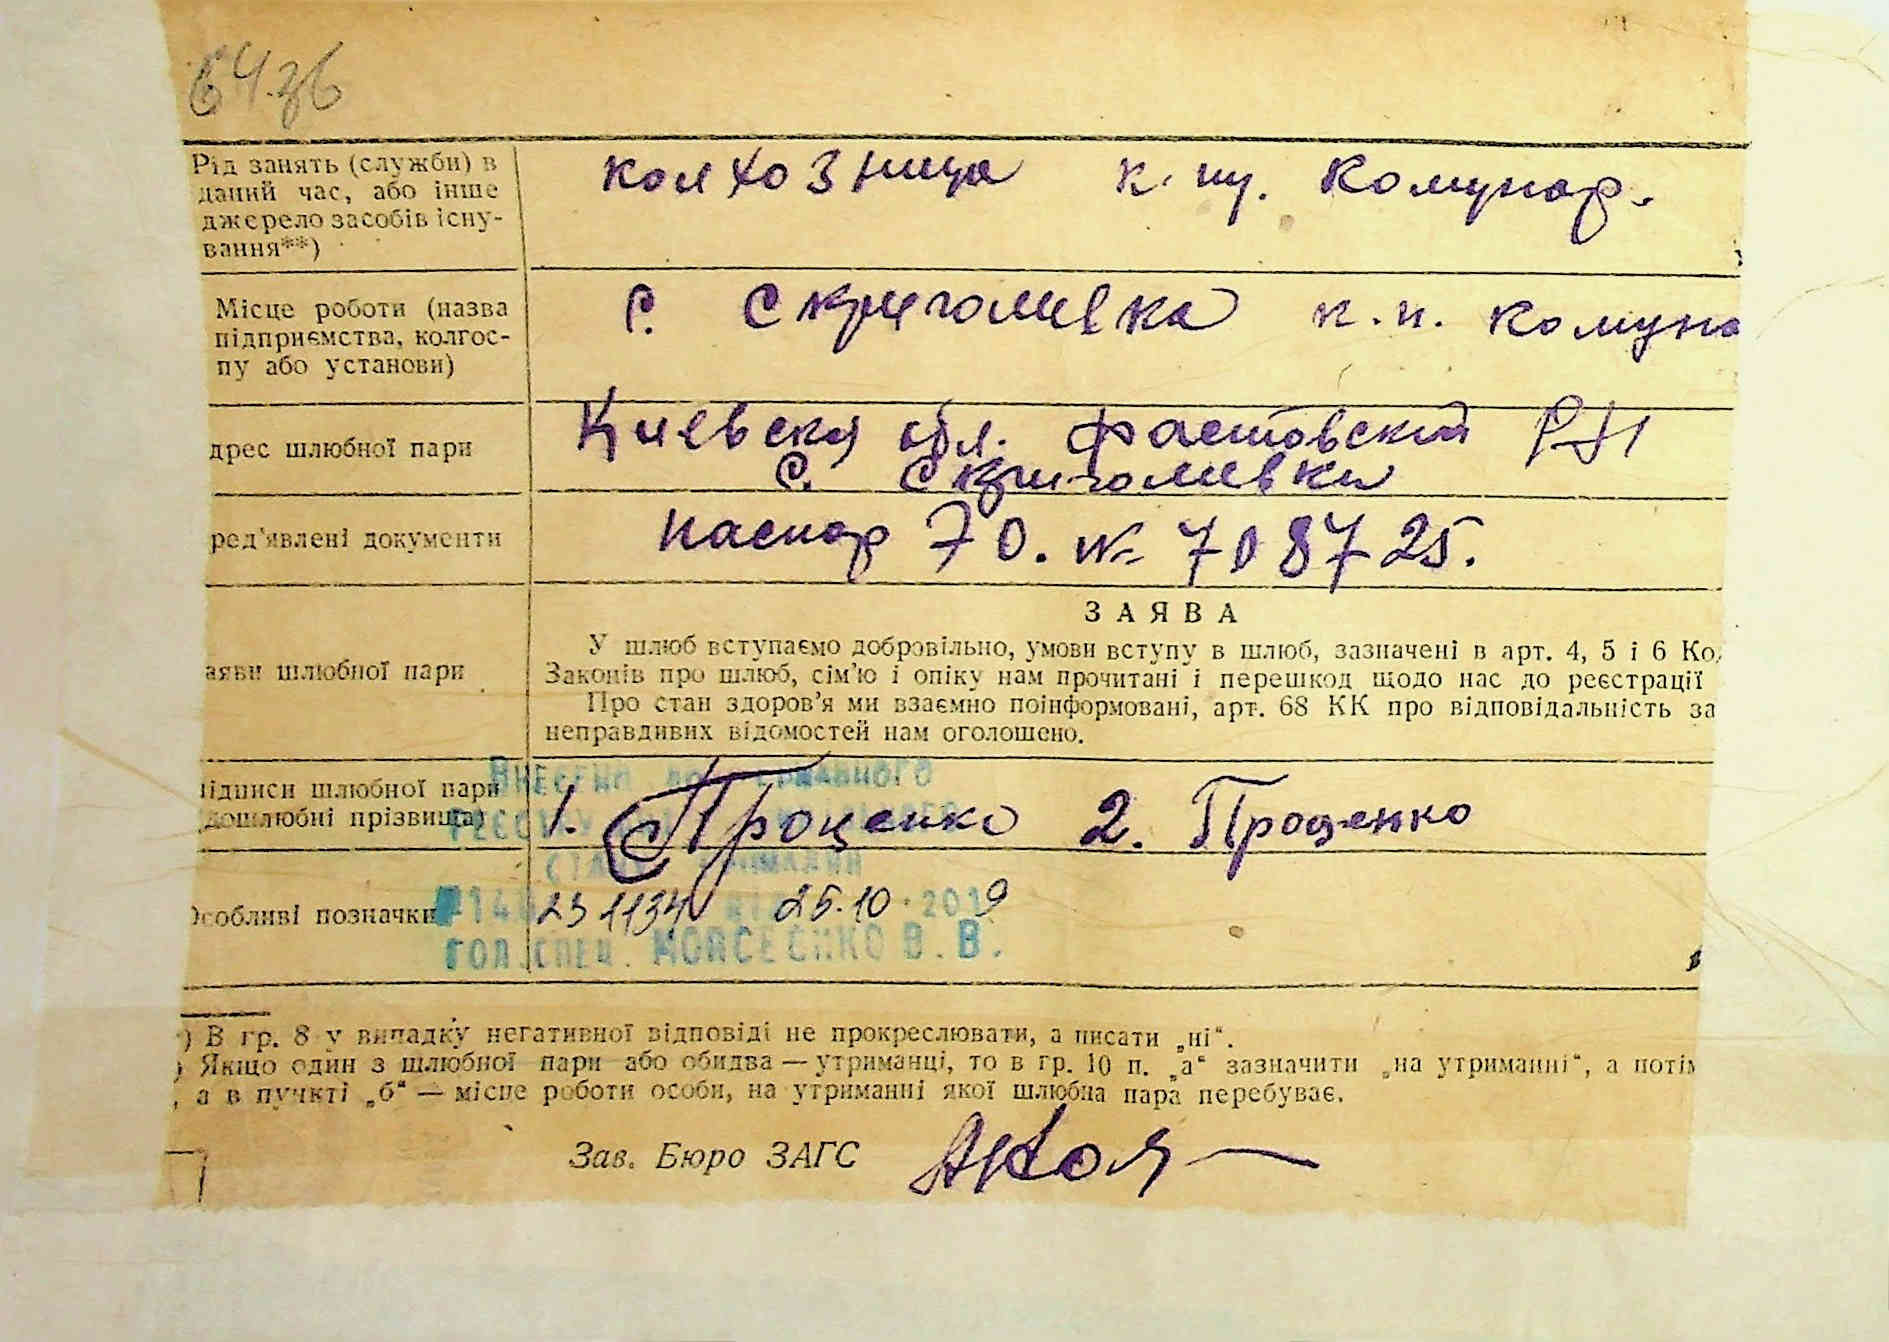 64 зв
Рід занять (служби) в
даний час, або інше
джерело засобів існу-
вання**)
колхозница к. им. Комунар.
Місце роботи (назва
підприємства, колгос-
пу або установи)
с. Скриголивка к. и. комуна
дрес шлюбної пари
Киевская обл. Фастовский РН
с. Скриголивка
ред'явлені документи
паспор 70. № 708725.
аяви шлюбної пари
ЗАЯВА
У шлюб вступаємо добровільно, умови вступу в шлюб, зазначені в арт. 4, 5 і 6 Ко
Законів про шлюб, сім'ю і опіку нам прочитані і перешкод щодо нас до реєстрації
Про стан здоров'я ми взаємно поінформовані, арт. 68 КК про відповідальність за
неправдивих відомостей нам оголошено.
ідписи шлюбної пари
дошлюбні прізвища)
1. Проценко 2. Проценко
Внесено до Державного
особливі позначки
231134 25.10.2019
Гол.спец. Моисеенко В.В.
) В гр. 8 у випадку негативної відповіді не прокреслювати, а писати „ні“.
) Якщо один з шлюбної пари або обидва — утриманці, то в гр. 10 п. „а“ зазначити „на утриманні“, а потім
, а в пункті „б“ — місце роботи особи, на утриманні якої шлюбна пара перебуває.
Зав. Бюро ЗАГС